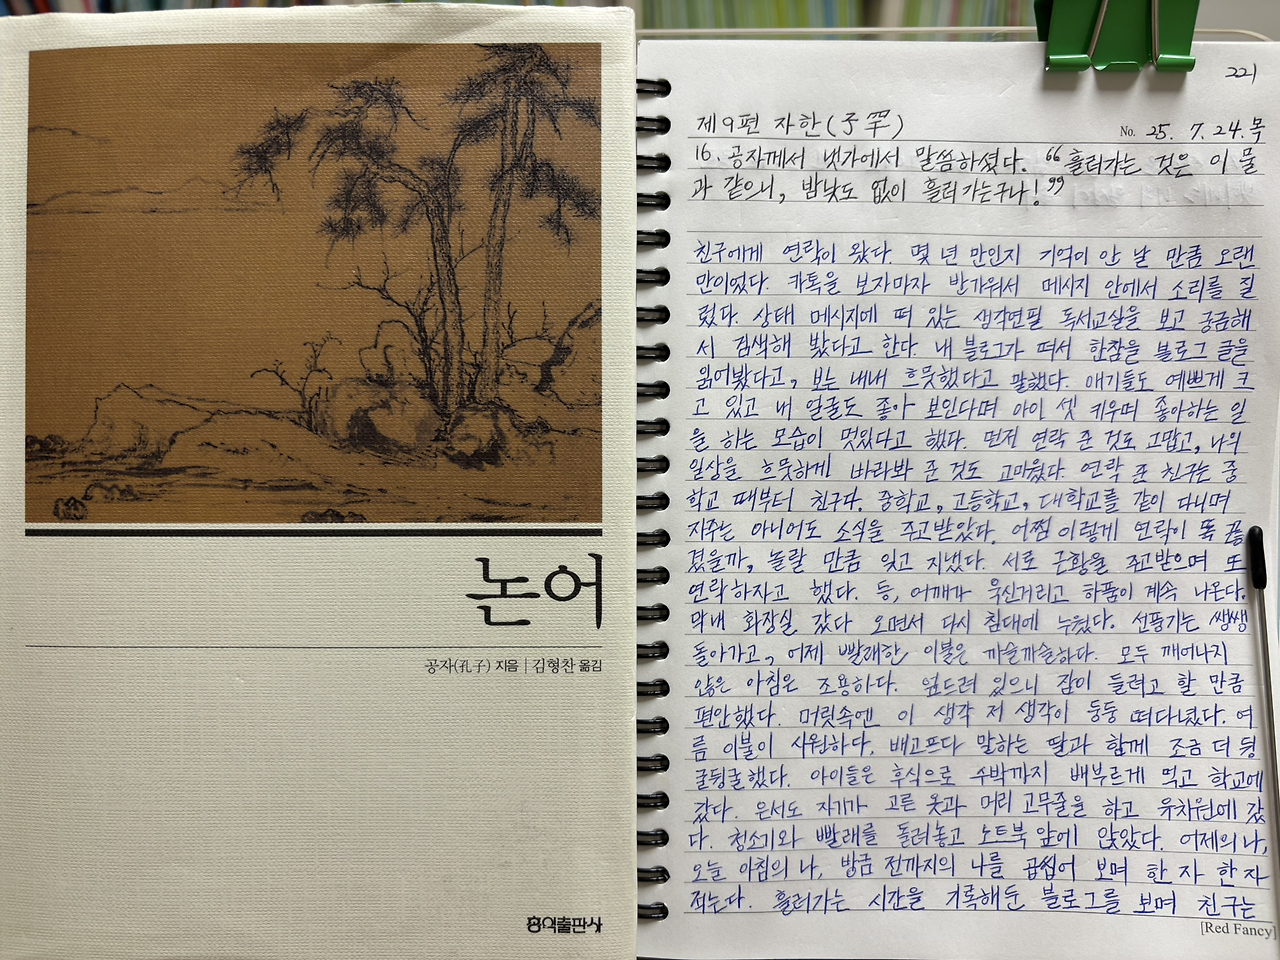 논어
공자(孔子) 지음 | 김형찬 옮김
홍익출판사
221
제9편 자한(子罕)
No. 25. 7. 24. 목
16. 공자께서 냇가에서 말씀하셨다. “흘러가는 것은 이 물
과 같으니, 밤낮도 없이 흘러가는구나!”
친구에게 연락이 왔다. 몇 년 만인지 기억이 안 날 만큼 오랜
만이었다. 카톡을 보자마자 반가워서 메시지 안에서 소리를 질
렀다. 상태 메시지에 떠 있는 생각연필 독서교실을 보고 궁금해
서 검색해 봤다고 한다. 내 블로그가 떠서 한참을 블로그 글을
읽어봤다고, 보는 내내 흐뭇했다고 말했다. 애기들도 예쁘게 크
고 있고 내 얼굴도 좋아 보인다며 아이 셋 키우며 좋아하는 일
을 하는 모습이 멋있다고 했다. 먼저 연락 준 것도 고맙고, 나의
일상을 흐뭇하게 바라봐 준 것도 고마웠다. 연락 준 친구는 중
학교 때부터 친구다. 중학교, 고등학교, 대학교를 같이 다니며
자주는 아니어도 소식을 주고받았다. 어쩜 이렇게 연락이 뚝 끊
겼을까, 놀랄 만큼 잊고 지냈다. 서로 근황을 주고받으며 또
연락하자고 했다. 등, 어깨가 욱신거리고 하품이 계속 나온다.
막내 화장실 갔다 오면서 다시 침대에 누웠다. 선풍기는 쌩쌩
돌아가고, 어제 빨래한 이불은 까슬까슬하다. 모두 깨어나지
않은 아침은 조용하다. 엎드려 있으니 잠이 들려고 할 만큼
편안했다. 머릿속엔 이 생각 저 생각이 둥둥 떠다녔다. 여
름 이불이 시원하다. 배고프다 말하는 딸과 함께 조금 더 뒹
굴뒹굴했다. 아이들은 후식으로 수박까지 배부르게 먹고 학교에
갔다. 은서도 자기가 고른 옷과 머리 고무줄을 하고 유치원에 갔
다. 청소기와 빨래를 돌려놓고 노트북 앞에 앉았다. 어제의 나,
오늘 아침의 나, 방금 전까지의 나를 곱씹어 보며 한 자 한 자
적는다. 흘러가는 시간을 기록해둔 블로그를 보며 친구는
[Red Fancy]